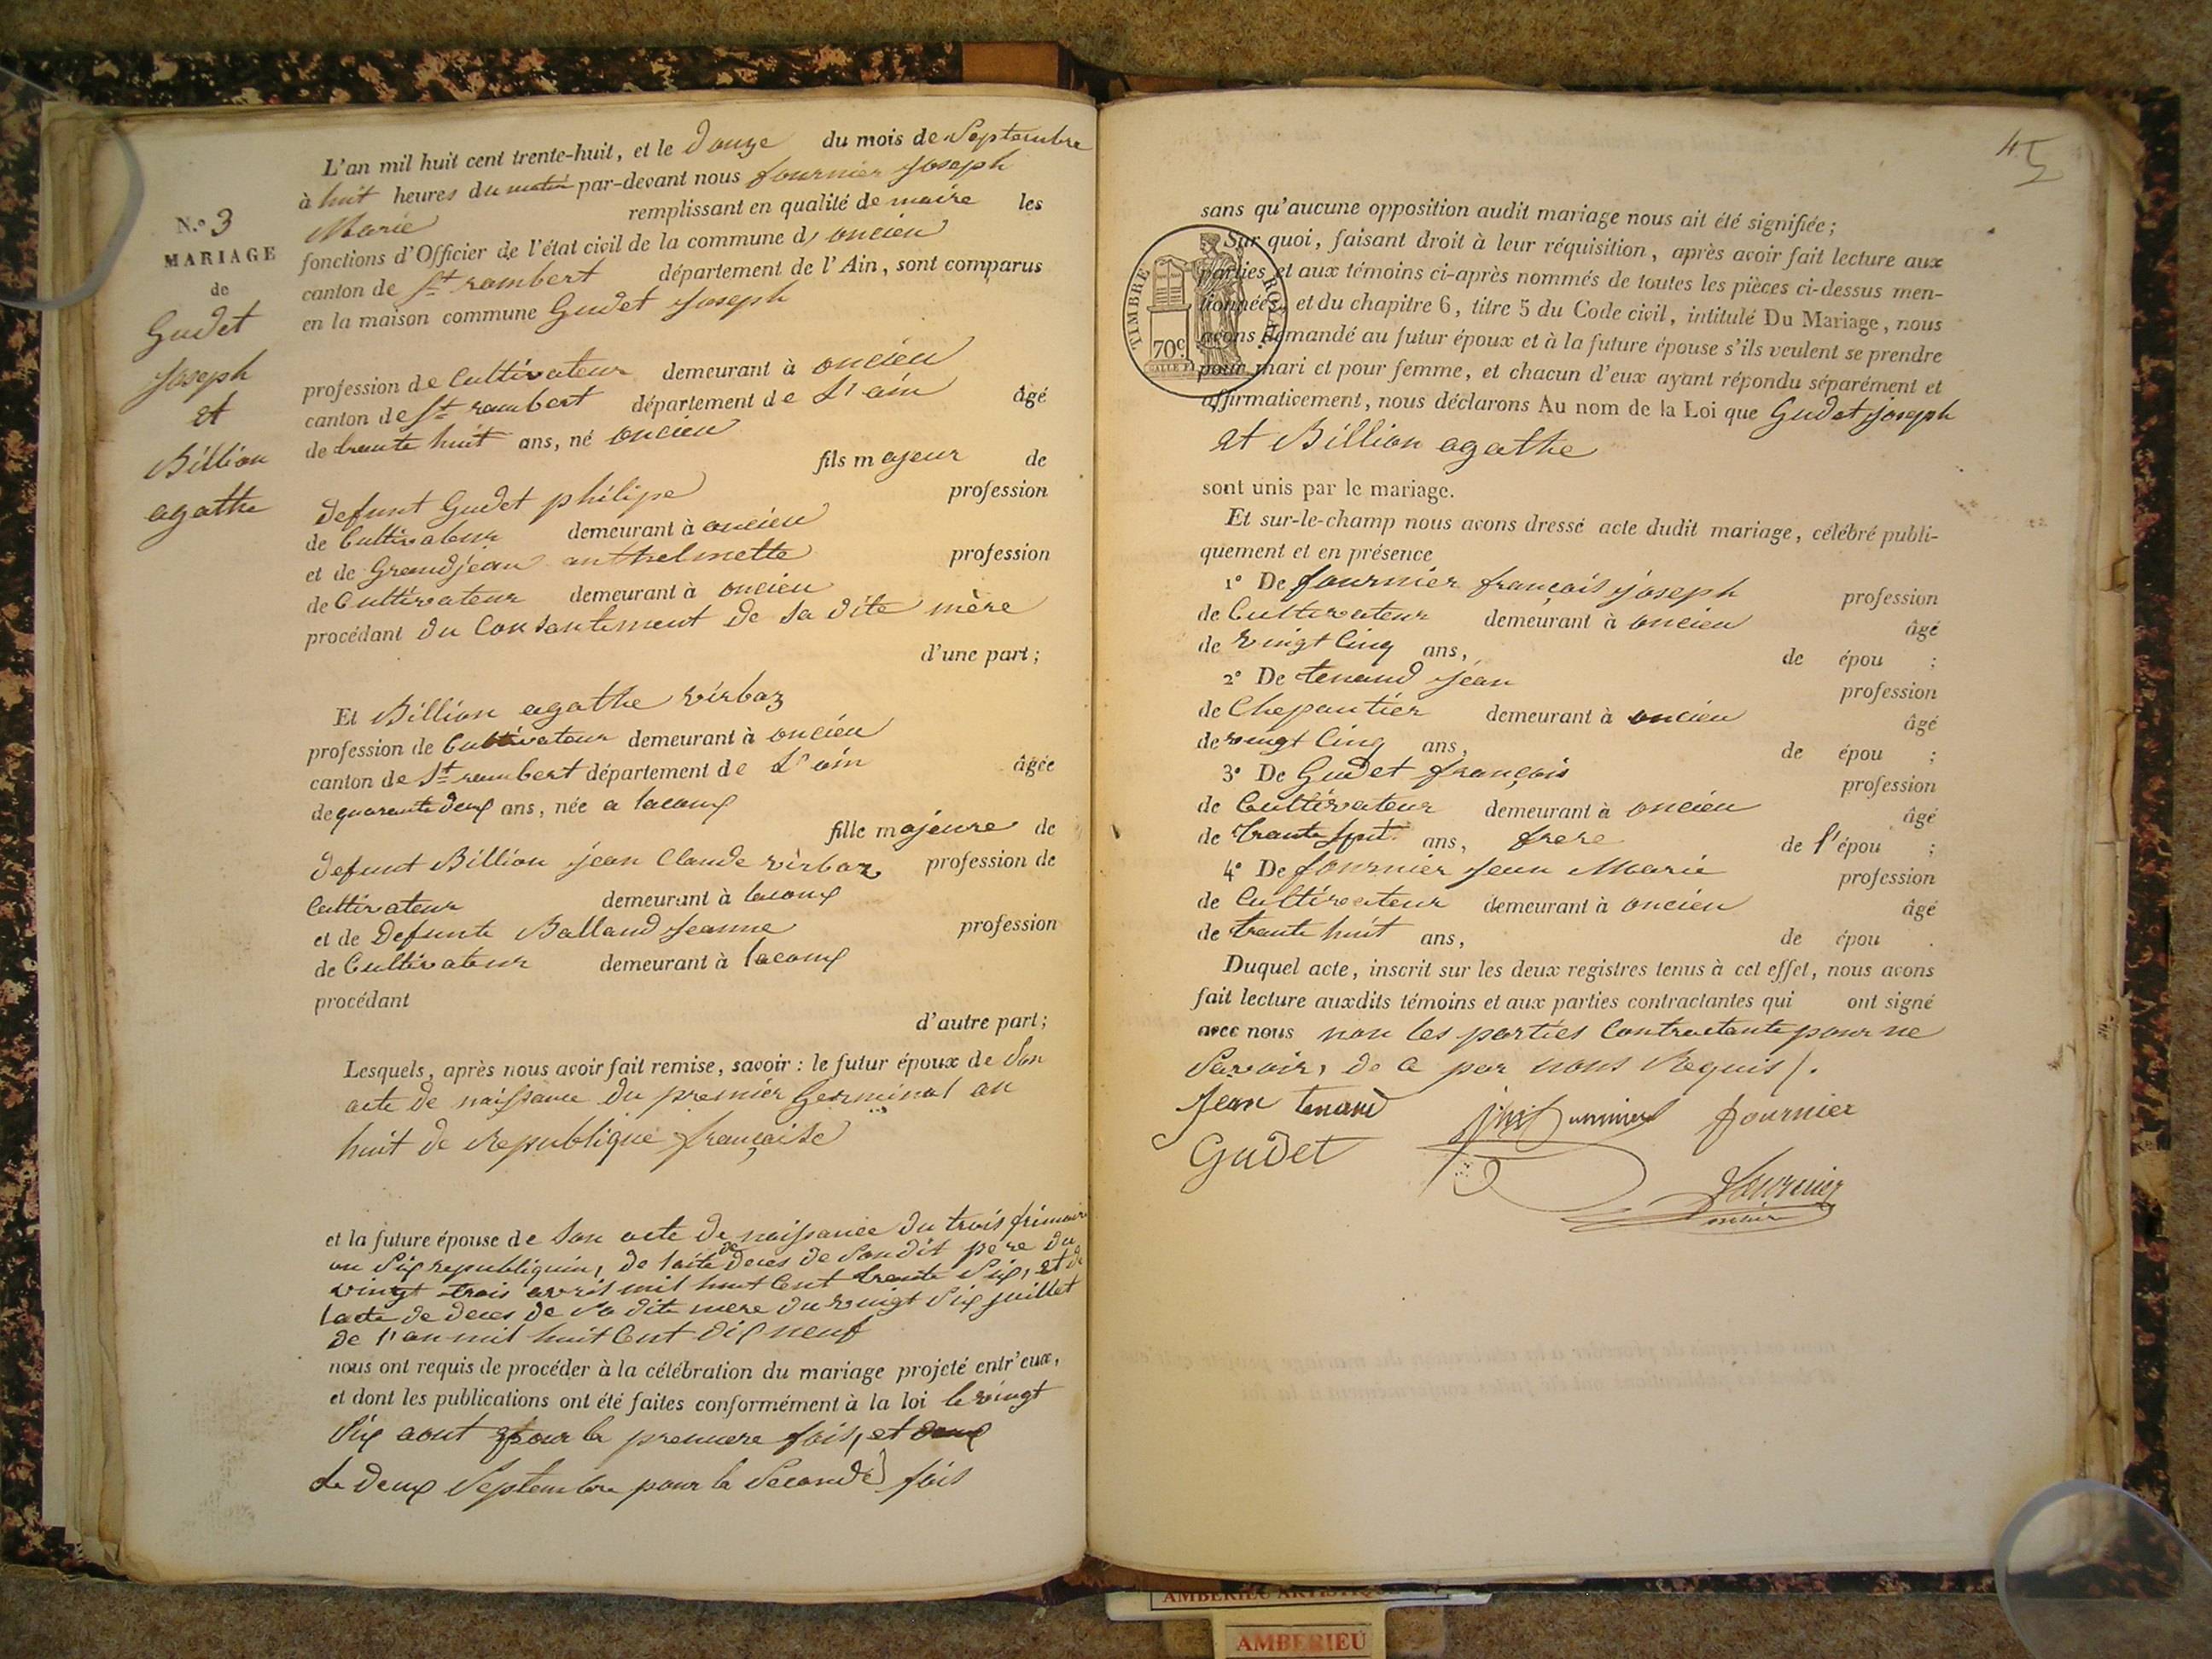 N.º 3
MARIAGE
de
Gudet
Joseph
et
Billion
agathe
L'an mil huit cent trente-huit, et le Douze du mois de Septembre
à huit heures du matin par-devant nous fournier Joseph
Marie remplissant en qualité de maire les
fonctions d'Officier de l'état civil de la commune d oncieu
canton de St rambert département de l'Ain, sont comparus
en la maison commune Gudet Joseph
profession de Cultivateur demeurant à oncieu
canton de St rambert département de L'ain âgé
de trante huit ans, né oncieu
fils majeur de
defunt Gudet philipe profession
de Cultivateur demeurant à oncieu
et de Grandjean anthelmette profession
de Cultivateur demeurant à oncieu
procédant du Consantement de Sa dite mère
d'une part;
Et Billion agathe virbaz
profession de Cultivateur demeurant à oncieu
canton de St rambert département de L'ain âgée
de quarante deux ans, née a lacoux
fille majeure de
defunt Billion jean Claude virbaz profession de
Cultivateur demeurant à lacoux
et de Defunte Balland Jeanne profession
de Cultivateur demeurant à lacoux
procédant
d'autre part;
Lesquels, après nous avoir fait remise, savoir : le futur époux de Son
acte de naissance du premier Germinal an
huit de republique française
et la future épouse de Son acte de naissance du trois frimaire
an Six republiquin, de lacte de deces de Son dit pere du
vingt trois avril mil huit Cent trente Six, et de
lacte de deces de Sa dite mere du vingt Six juillet
de l'an mil huit Cent dix neuf
nous ont requis de procéder à la célébration du mariage projeté entr'eux,
et dont les publications ont été faites conformément à la loi le vingt
Six aout pour la premiere fois, et
Le deux Septembre pour la Seconde fois
45
sans qu'aucune opposition audit mariage nous ait été signifiée;
Sur quoi, faisant droit à leur réquisition, après avoir fait lecture aux
parties et aux témoins ci-après nommés de toutes les pièces ci-dessus men-
tionnées, et du chapitre 6, titre 5 du Code civil, intitulé Du Mariage, nous
avons demandé au futur époux et à la future épouse s'ils veulent se prendre
pour mari et pour femme, et chacun d'eux ayant répondu séparément et
affirmativement, nous déclarons Au nom de la Loi que Gudet joseph
et Billion agathe
sont unis par le mariage.
Et sur-le-champ nous avons dressé acte dudit mariage, célébré publi-
quement et en présence
1º De fournier françois joseph profession
de Cultivateur demeurant à oncieu âgé
de vingt Cinq ans, de épou ;
2º De tenand jean profession
de Chepantier demeurant à oncieu âgé
de vingt Cinq ans, de épou ;
3º De Gudet françois profession
de Cultivateur demeurant à oncieu âgé
de trante ans, frere de l'épou ;
4º De fournier jean Marie profession
de Cultivateur demeurant à oncieu âgé
de trante huit ans, de épou .
Duquel acte, inscrit sur les deux registres tenus à cet effet, nous avons
fait lecture auxdits témoins et aux parties contractantes qui ont signé
avec nous non les parties Contractante pour ne
Savoir, de Ce par nous Requis /.
Jean tenand fournier
Gudet
fournier
maire
TIMBRE ROYAL
70c
AMBERIEU ARTISTIQUE
AMBERIEU